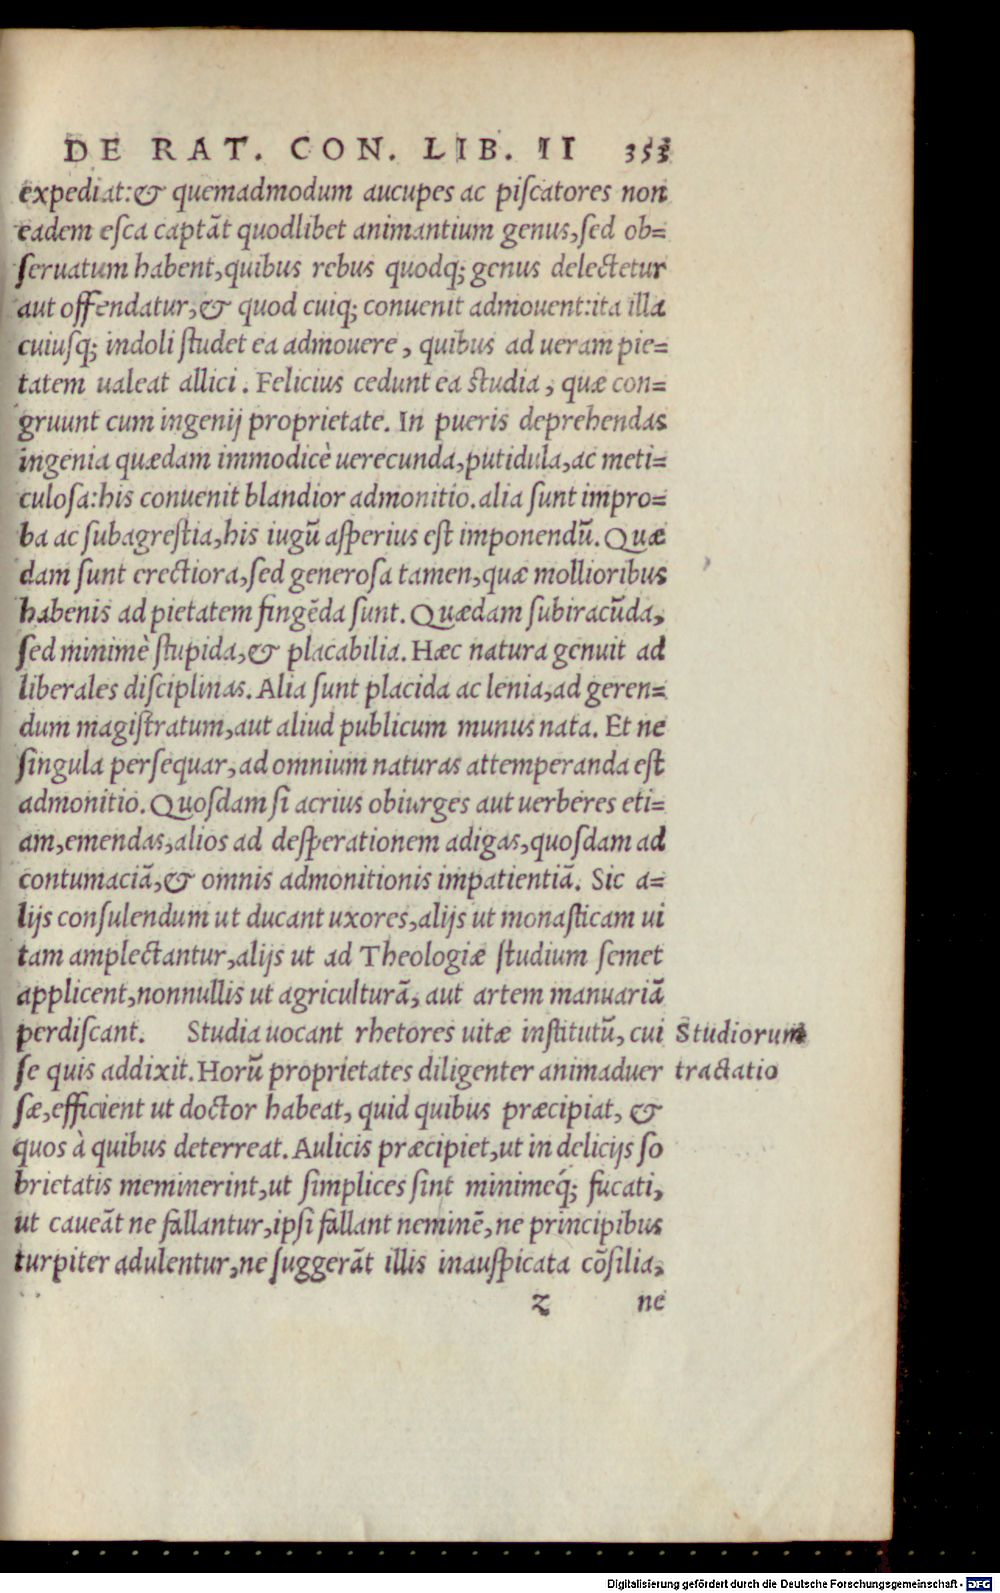 DE RAT. CON. LIB. II 353
expediat:& quemadmodum aucupes ac piſcatores non
eadem eſca captāt quodlibet animantium genus,ſed ob=
ſeruatum habent,quibus rebus quodq; genus delectetur
aut offendatur,& quod cuiq; conuenit admouent:ita illa
cuiuſq; indoli ſtudet ea admouere, quibus ad ueram pie=
tatem ualeat allici. Felicius cedunt ea ſtudia, quæ con=
gruunt cum ingenij proprietate. In pueris deprehendas
ingenia quædam immodicè uerecunda,putidula,ac meti=
culoſa:his conuenit blandior admonitio.alia ſunt impro=
ba ac ſubagreſtia,his iugū aſperius eſt imponendū. Quæ
dam ſunt erectiora,ſed generoſa tamen,quæ mollioribus
habenis ad pietatem fingēda ſunt. Quædam ſubiracūda,
ſed minimè ſtupida,& placabilia. Hæc natura genuit ad
liberales diſciplinas. Alia ſunt placida ac lenia,ad geren=
dum magiſtratum,aut aliud publicum munus nata. Et ne
ſingula perſequar,ad omnium naturas attemperanda eſt
admonitio. Quoſdam ſi acrius obiurges aut uerberes eti=
am,emendas,alios ad deſperationem adigas,quoſdam ad
contumaciā,& omnis admonitionis impatientiā. Sic a=
lijs conſulendum ut ducant uxores,alijs ut monaſticam ui
tam amplectantur,alijs ut ad Theologiæ ſtudium ſemet
applicent,nonnullis ut agriculturā, aut artem manuariā
perdiſcant. Studia uocant rhetores uitæ inſtitutū, cui Studiorum
ſe quis addixit. Horū proprietates diligenter animaduer tractatio
ſæ,efficient ut doctor habeat, quid quibus præcipiat, &
quos à quibus deterreat. Aulicis præcipiet,ut in delicijs ſo
brietatis meminerint,ut ſimplices ſint minimeq́; fucati,
ut caueāt ne fallantur,ipſi fallant neminē,ne principibus
turpiter adulentur,ne ſuggerāt illis inauſpicata cōſilia,
z ne
Digitalisierung gefördert durch die Deutsche Forschungsgemeinschaft - DFG